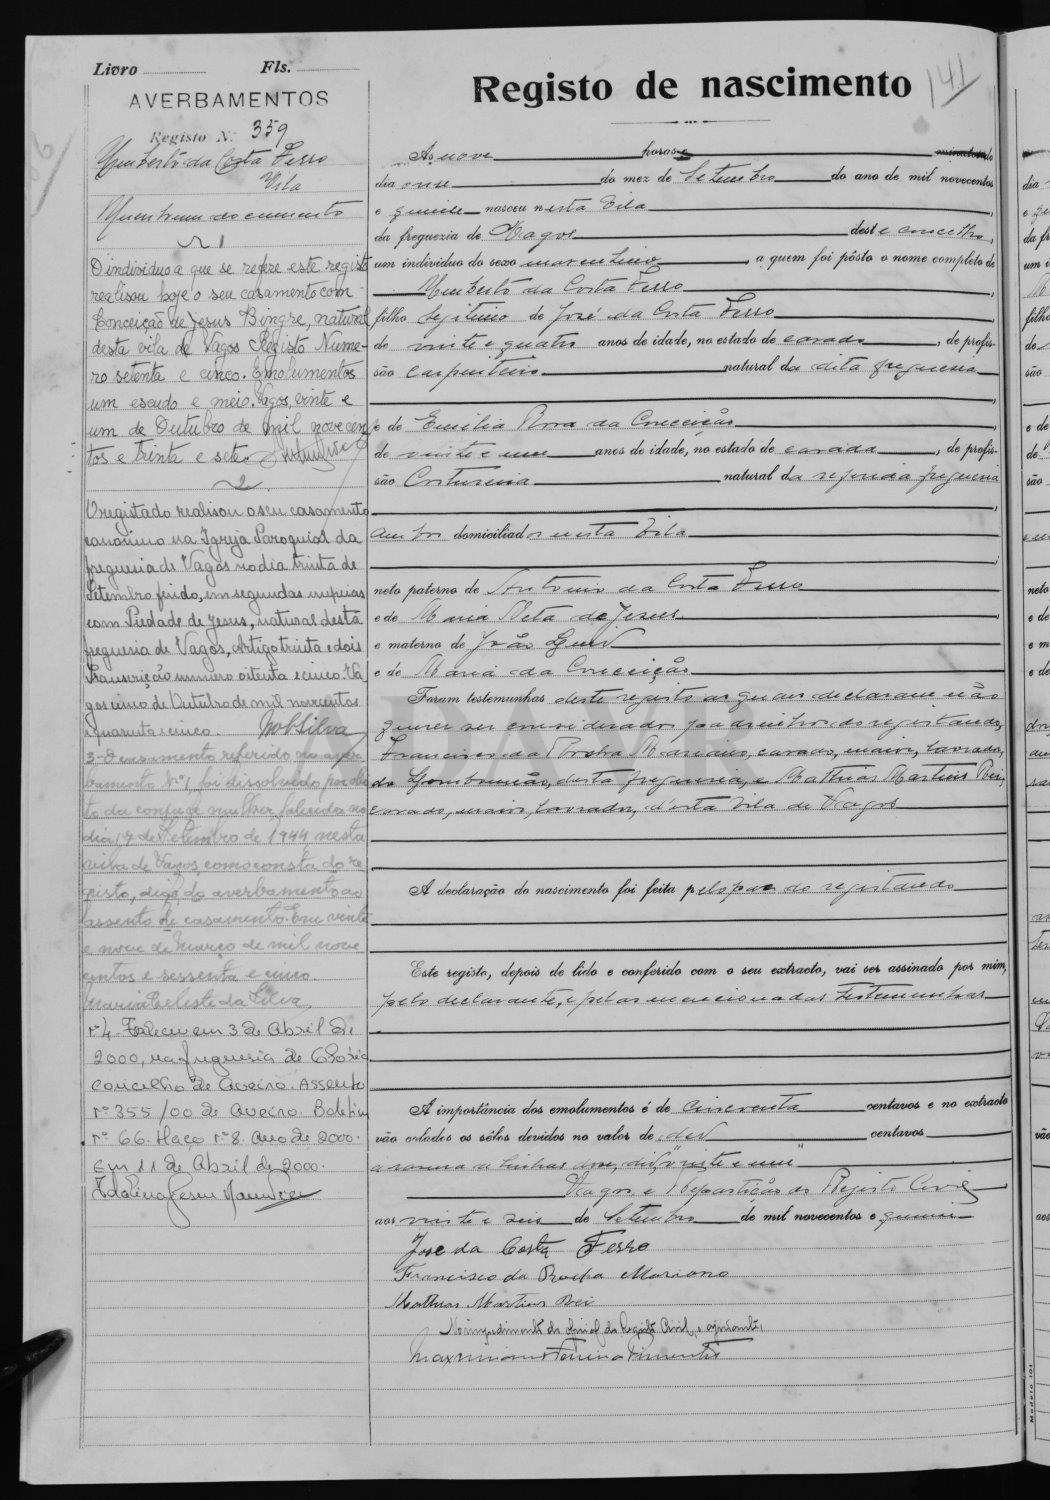 Livro Fls.
AVERBAMENTOS
Registo N.º 359
Humberto da Costa Ferro
Vila
Nenhum documento
1
O individuo a que se refere este registo
realisou hoje o seu casamento com
Conceição de Jesus Bingre, natural
desta vila de Vagos Registo Nume-
ro setenta e cinco. Emolumentos
um escudo e meio. Vagos, vinte e
um de Outubro de mil novecen-
tos e trinta e sete.
2
O registado realisou o seu casamento
canonico na Igreja Paroquial da
freguesia de Vagos no dia trinta de
Setembro findo, em segundas nupcias
com Piedade de Jesus, natural desta
freguesia de Vagos, Artigo trinta e dois
Transcrição numero oitenta e cinco. Va
gos cinco de Outubro de mil novecentos
e quarenta e cinco. Silva
3-O casamento referido no aver
bamento Nº1, foi dissolvido por óbi
to da conjuge mulher, falecida no
dia 17 de Setembro de 1944 nesta
vila de Vagos, como consta do re
gisto, digo do averbamento ao
assento de casamento. Em vinte
e nove de Março de mil nove
centos e sessenta e cinco.
Maria Celeste da Silva
nº4- Faleceu em 3 de Abril de
2000, na freguesia de Glória
concelho de Aveiro. Assento
nº 355/00 de Aveiro. Boletim
nº 66. Maço nº 8. Ano de 2000.
Em 11 de Abril de 2000.
Registo de nascimento
141
Ás nove horas e minutos do
dia onse do mez de Setembro do ano de mil novecentos
e quinse nasceu nesta Vila
da freguezia de Vagos deste concelho,
um individuo do sexo masculino, a quem foi pôsto o nome completo de
Humberto da Costa Ferro
filho legitimo de José da Costa Ferro
de vinte e quatro anos de idade, no estado de casado, de profis-
são carpinteiro natural da dita freguesia
e de Emilia Rosa da Conceição
de vinte e um anos de idade, no estado de casada, de profis-
são Costureira natural da referida freguesia
ambos domiciliados nesta Vila
neto paterno de Antonio da Costa Ferro
e de Maria Neta de Jesus
e materno de João
e de Maria da Conceição
Foram testemunhas deste registo as quais declararam não
querer ser considerados padrinhos do registando,
Francisco da Rocha Mariano, casado, maior, lavrador,
do Lombomeão, desta freguesia, e Mathias Martins Rei,
casado, maior, lavrador, d'esta Vila de Vagos
A declaração do nascimento foi feita pelo pae do registando
Este registo, depois de lido e conferido com o seu extracto, vai ser assinado por mim,
pelo declarante, e pelas mencionadas testemunhas
A importância dos emolumentos é de cincoenta centavos e no extracto
vão colados os sêlos devidos no valor de dez centavos
Vagos e Repartição do Registo Civil
aos vinte e seis de Setembro de mil novecentos e quinse
José da Costa Ferro
Francisco da Rocha Mariano
Mathias Martins Rei
No impedimento do oficial do Registo Civil, o ajudante,
Modelo 101